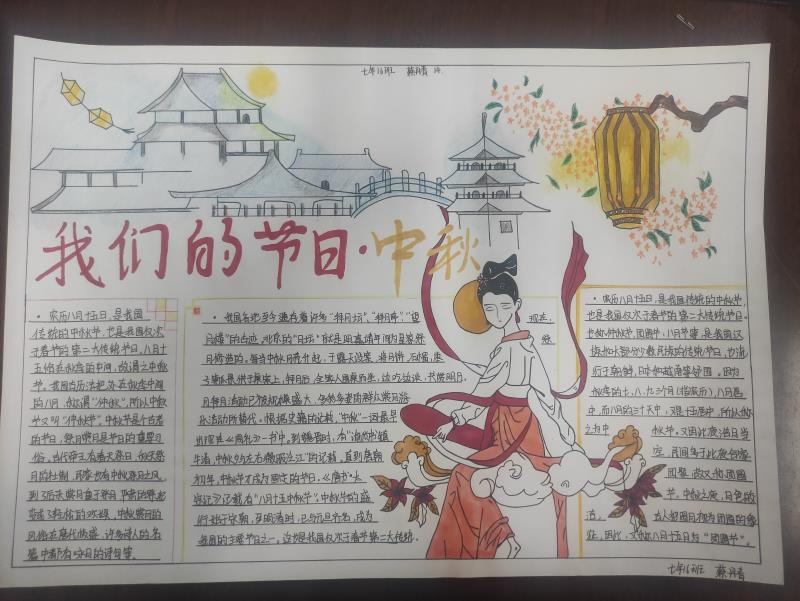 七年16班 蔡丹青 作
我们的节日·中秋
·农历八月十五日,是我国
传统的中秋节,也是我国仅次
于春节的第二大传统节日。八月十
五恰在秋季的中间,故谓之中秋
节。我国古历法把处在秋季中间
的八月,称谓"仲秋",所以中秋
节又叫"仲秋节"。中秋节是个古老
的节日,祭月赏月是节日的重要习
俗。古代帝王有春天祭日,秋天祭
月的社制,民家也有中秋祭月之风,
到了后来赏月重于祭月,严肃的祭祀
变成了轻松的欢娱。中秋赏月的
风俗在唐代极盛,许多诗人的名
篇中都有咏月的诗句
·我国各地至今遗存着许多"拜月坛"、"拜月亭"、"望
月楼"的古迹。北京的"月坛"就是明嘉靖年间为皇家祭
月修造的。每当中秋月亮升起,于露天设案,将月饼、石榴、
子等瓜果供于桌案上,拜月后,全家人围桌而坐,边吃边谈,共赏明月。
现在,祭
月拜月活动已被规模盛大、多彩多姿的群众赏月游
乐活动所替代。根据史籍的记载,"中秋"一词最早
出现在《周礼》一书中。到魏晋时,有"谕尚书镇
牛渚,中秋夕与左右微服泛江"的记载。直到唐朝
初年,中秋节才成为固定的节日。《唐书·太
宗记》记载有"八月十五中秋节"。中秋节的盛
行始于宋朝,至明清时,已与元旦齐名,成为
我国的主要节日之一。这也是我国仅次于春节的第二大传统
·农历八月十五日,是我国传统的中秋节,
也是我国仅次于春节的第二大传统节日。
也如仲秋节、团圆节、八月节等,是我国汉
族和大部分少数民族的传统节日,也流
行于朝鲜、日本和越南等邻国。因为
秋季的七、八、九三个月(指农历),八月居
中,而八月的三十天中,又是十五居中,所以称
之为中秋节。又因此夜浩月当
空,民间多于此夜合家
团聚,故又称团圆
节。中秋之夜,月色皎
洁,古人把圆月视为团圆的象
征,因此,又称八月十五日为"团圆节"。
七年16班 蔡丹青